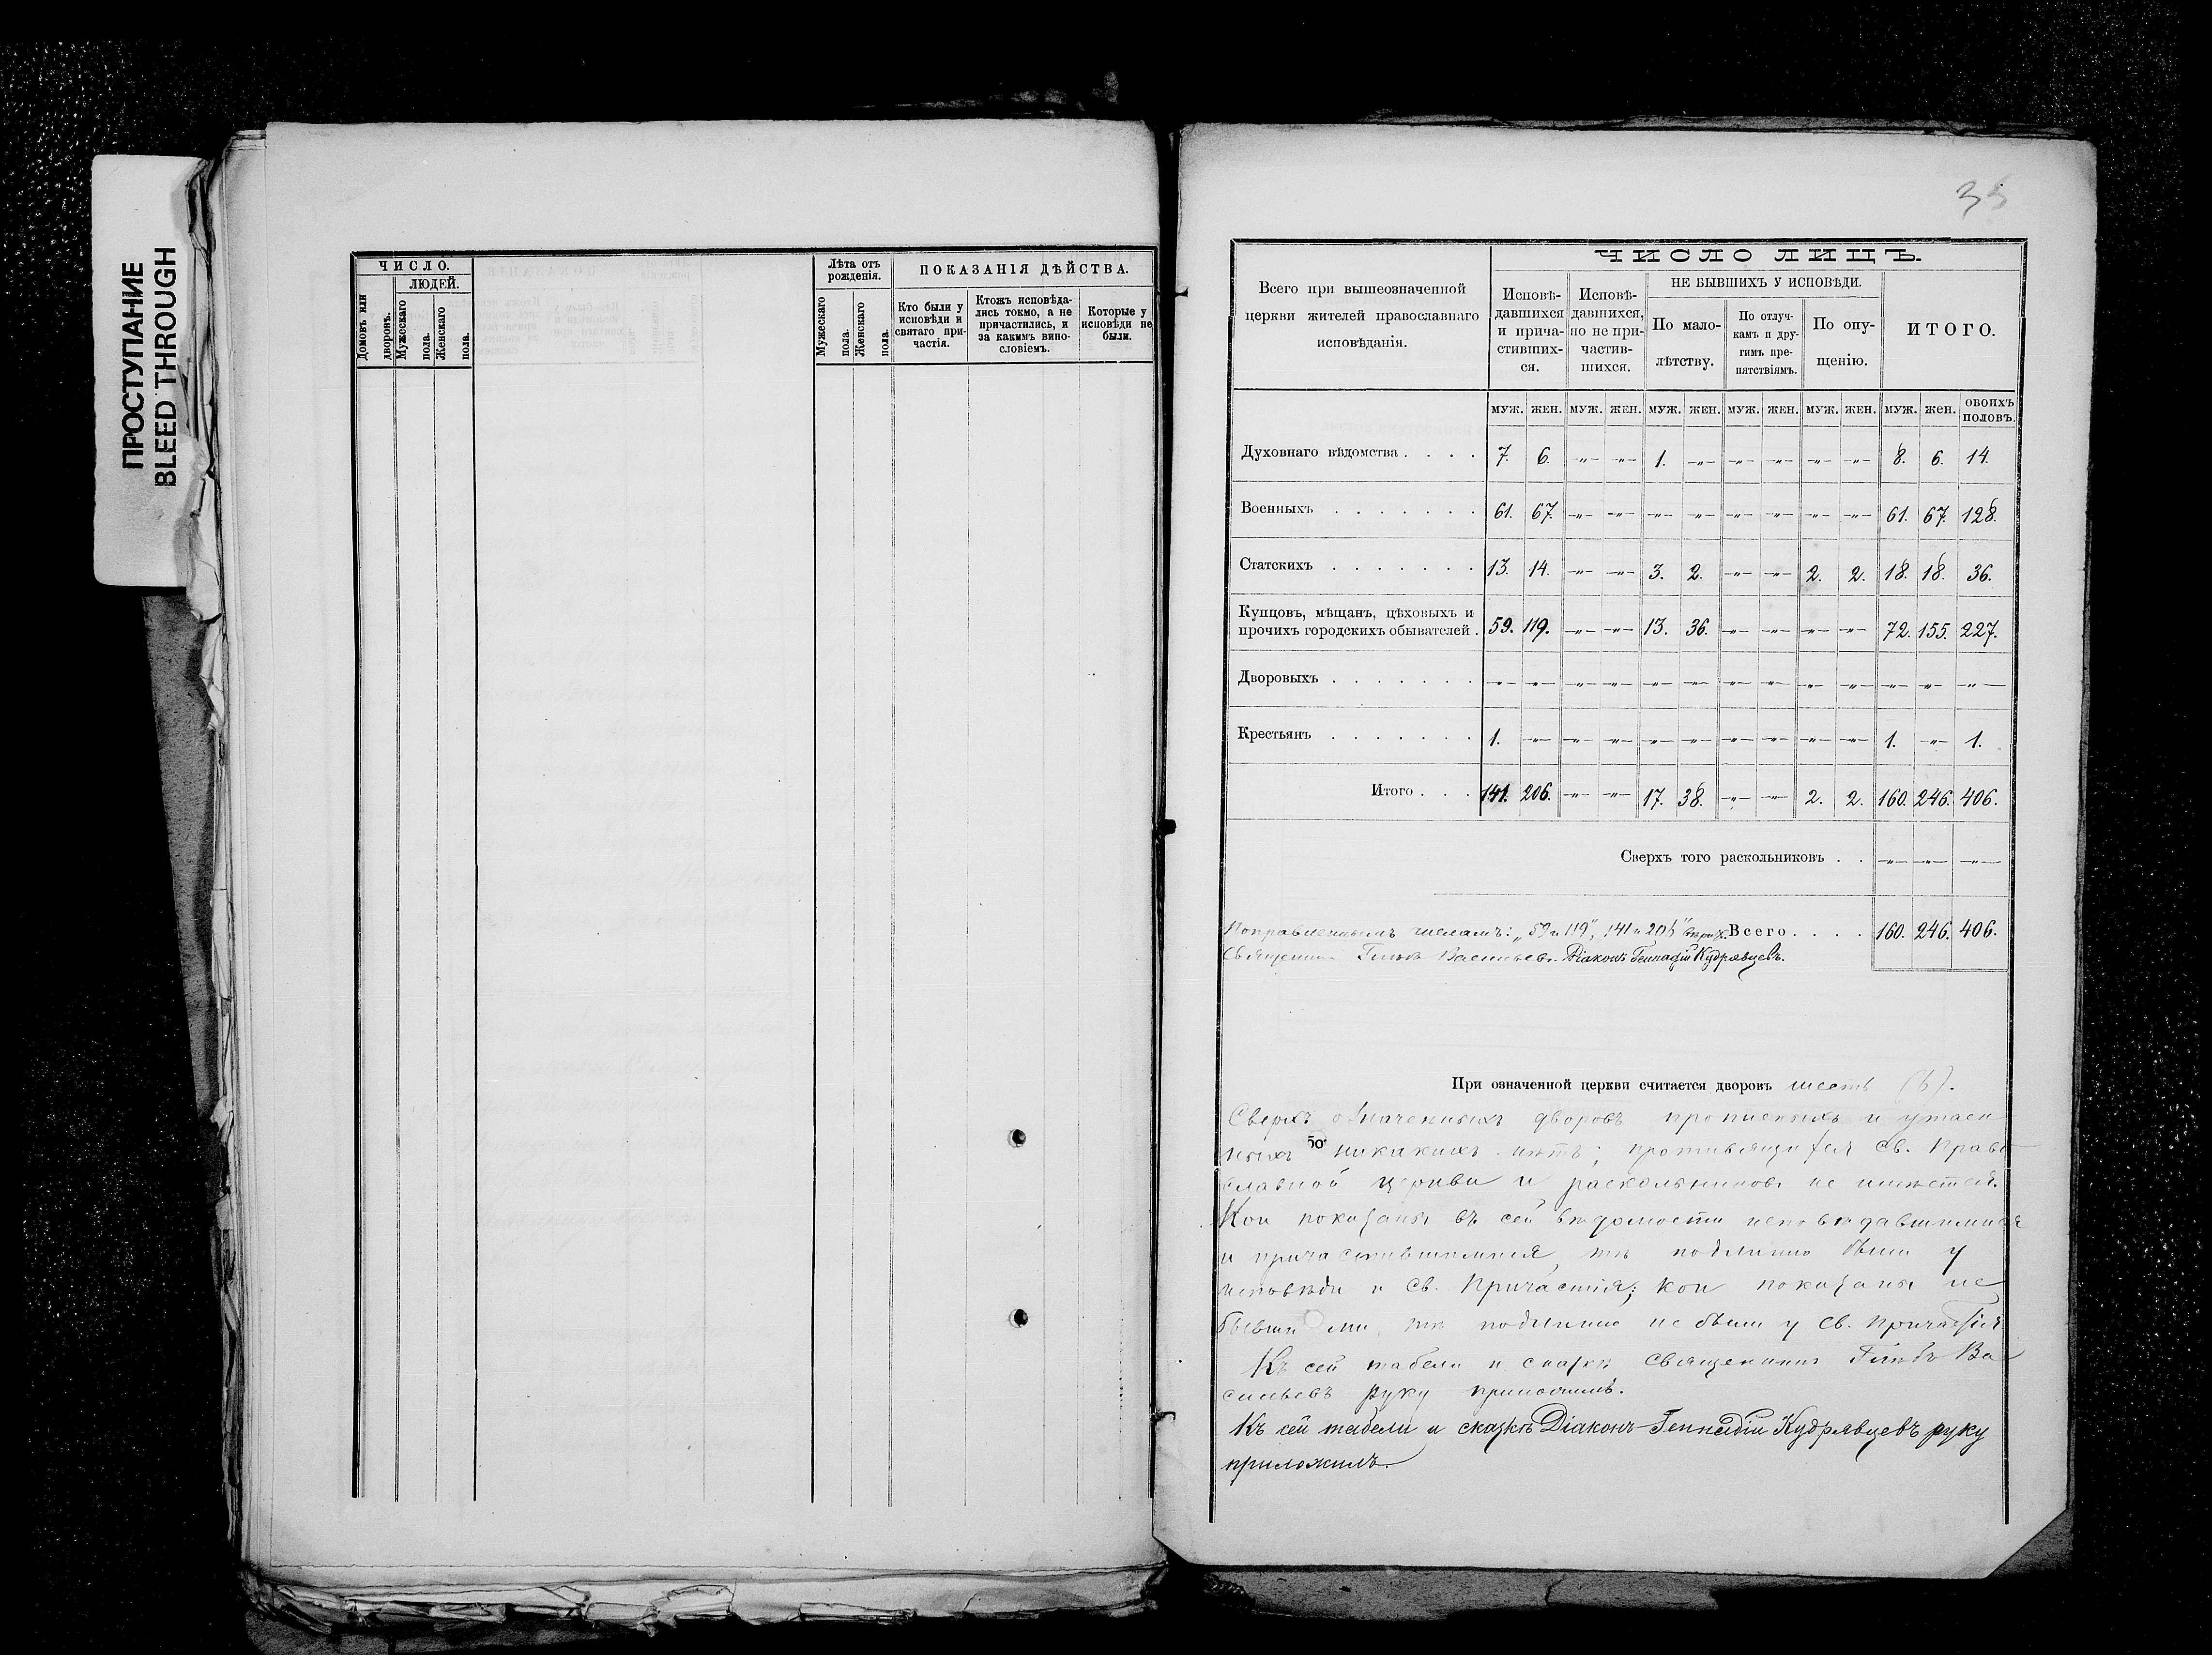 ПРОСТУПАНИЕ
BLEED THROUGH
ЧИСЛО.
ЛЮДЕЙ.
Домовъ или дворовъ.
Мужескаго пола.
Женскаго пола.
Лѣта отъ рожденія.
Мужескаго пола.
Женскаго пола.
ПОКАЗАНІЯ ДѢЙСТВА.
Кто были у
исповѣди и
святаго при-
частія.
Ктожъ исповѣда-
лись токмо, а не
причастились, и
за какимъ вино-
словіемъ.
Которые у
исповѣди не
были.
35
Всего при вышеозначенной
церкви жителей православнаго
исповѣданія.
ЧИСЛО ЛИЦЪ.
Исповѣ-
давшихся
и прича-
стивших-
ся.
Исповѣ-
давшихся,
но не при-
частив-
шихся.
НЕ БЫВШИХЪ У ИСПОВѢДИ.
По мало-
лѣтству.
По отлуч-
камъ и дру-
гимъ пре-
пятствіямъ.
По опу-
щенію.
ИТОГО.
МУЖ. ЖЕН. МУЖ. ЖЕН. МУЖ. ЖЕН. МУЖ. ЖЕН. МУЖ. ЖЕН. МУЖ. ЖЕН. ОБОИХЪ ПОЛОВЪ.
Духовнаго вѣдомства . . . . 7. 6. -„- -„- 1. -„- -„- -„- -„- -„- 8. 6. 14.
Военныхъ . . . . . . . 61. 67. -„- -„- -„- -„- -„- -„- -„- -„- 61. 67. 128.
Статскихъ . . . . . . . 13. 14. -„- -„- 3. 2. -„- -„- 2. 2. 18. 18. 36.
Купцовъ, мѣщанъ, цѣховыхъ и
прочихъ городскихъ обывателей . 59. 119. -„- -„- 13. 36. -„- -„- -„- -„- 72. 155. 227.
Дворовыхъ . . . . . . . -„- -„- -„- -„- -„- -„- -„- -„- -„- -„- -„- -„- -„-
Крестьянъ . . . . . . . 1. -„- -„- -„- -„- -„- -„- -„- -„- -„- 1. -„- 1.
Итого . . . 141. 206. -„- -„- 17. 38. -„- -„- 2. 2. 160. 246. 406.
Сверхъ того раскольниковъ . . -„- -„- -„-
Поправленнымъ числамъ: „59 и 119", 141 и 206" Всего . . . . 160. 246. 406.
Священникъ Глѣбъ Васильевъ. Діаконъ Геннадій Кудрявцевъ.
При означенной церкви считается дворовъ шесть (6).
Сверхъ означенныхъ дворовъ прописныхъ и утаен
ныхъ никакихъ нѣтъ; противящихся св. Право
славной церкви и раскольниковъ не имѣется.
Кои показаны въ сей вѣдомости исповѣдавшимися
и причастившимися, тѣ подлинно были у
исповѣди и св. Причастія; кои показаны не
бывшими, тѣ подлинно не были у св. причастія
Къ сей табели и сказкѣ священникъ Глѣбъ Ва
сильевъ руку приложилъ.
Къ сей табели и сказкѣ Діаконъ Геннадій Кудрявцевъ руку
приложилъ.